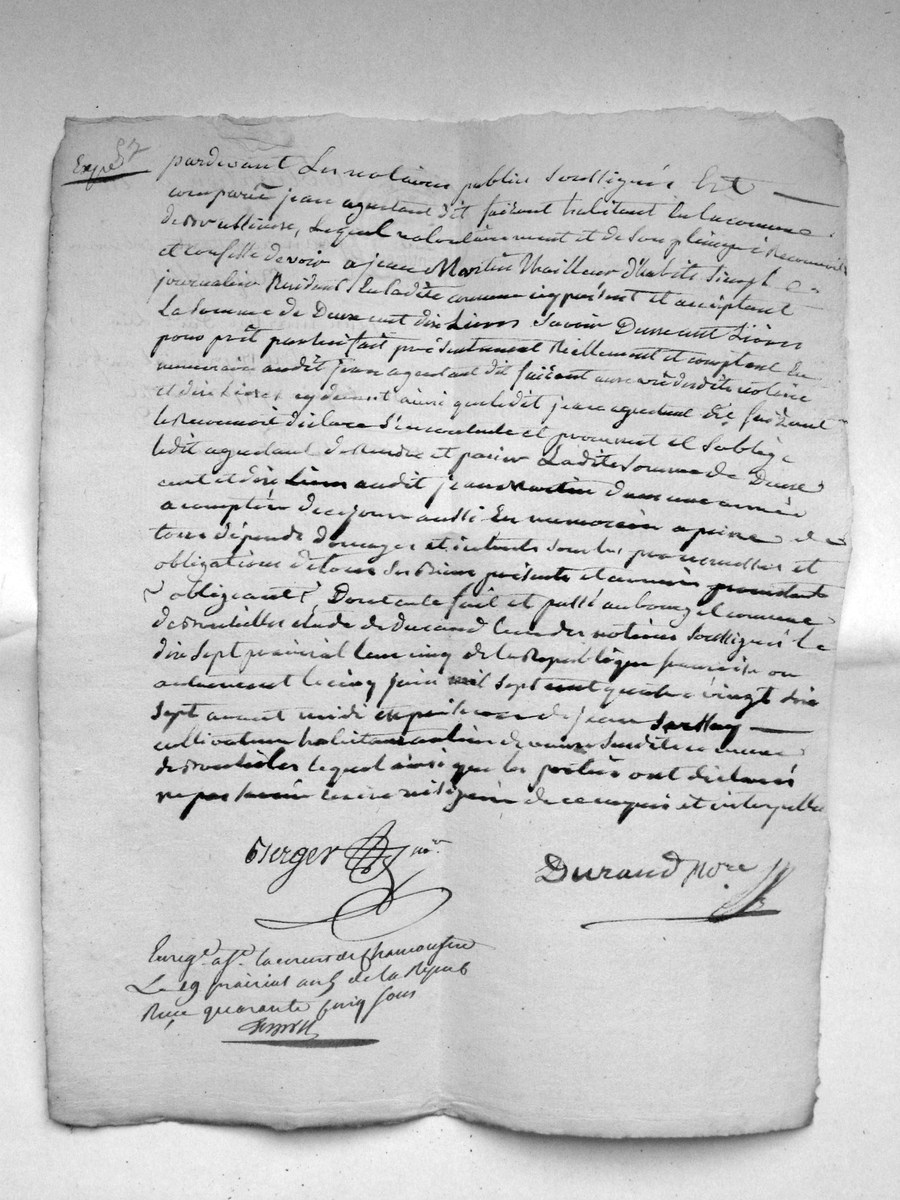 Expé 57
pardevant Les notaires publics Soussignés Est
comparû jean aguetant dit faisant habitant En la commune
de Brussilieux, Lequel volontairement et de son plein gré Reconnoit
et confesse devoir a jean Martin tailleur d'habits
journalier Résidant En la dite commune icy présent et acceptant
La Somme de Deux cent dix Livres Savoir Deux cent Livres
pour prêt par lui fait présentement Réellement et comptant En
numeraire audit jean aguetant dit faisant au vû desdits notaire
et dix Livres cy devant ainsi que ledit jean aguetant dit faisant
le Reconnoit déclare S'en contente et promet et S'oblige
ledit aguetant de Rendre et paier Ladite Somme de Deux
cent et dix Livres audit jean Martin dans une année
a compter de ce jour aussi En numeraire a peine de
tous dépends domages et intérêts Sous les promesses et
obligations de tous Ses Biens présents et avenir
obligeant &c Dont acte fait et passé au bourg et commune
de étude de Durand l'un des notaires Soussignés le
dix Sept prairial l'an cinq de la République française ou
autrement le cinq juin mil Sept cent quatre vingt dix
Sept avant midi En présence de jean
cultivateur habitant au lieu de Susdite commune
de lequel ainsi que les parties ont déclarés
ne pas Savoir écrire ni Signer de ce enquis et interpellés
Berger no.re
Durand No.re
Enreg.é a S.t Laurent de Chamousset
Le 19 prairial an 5 de la Répub
Reçu quarante Cinq Sous